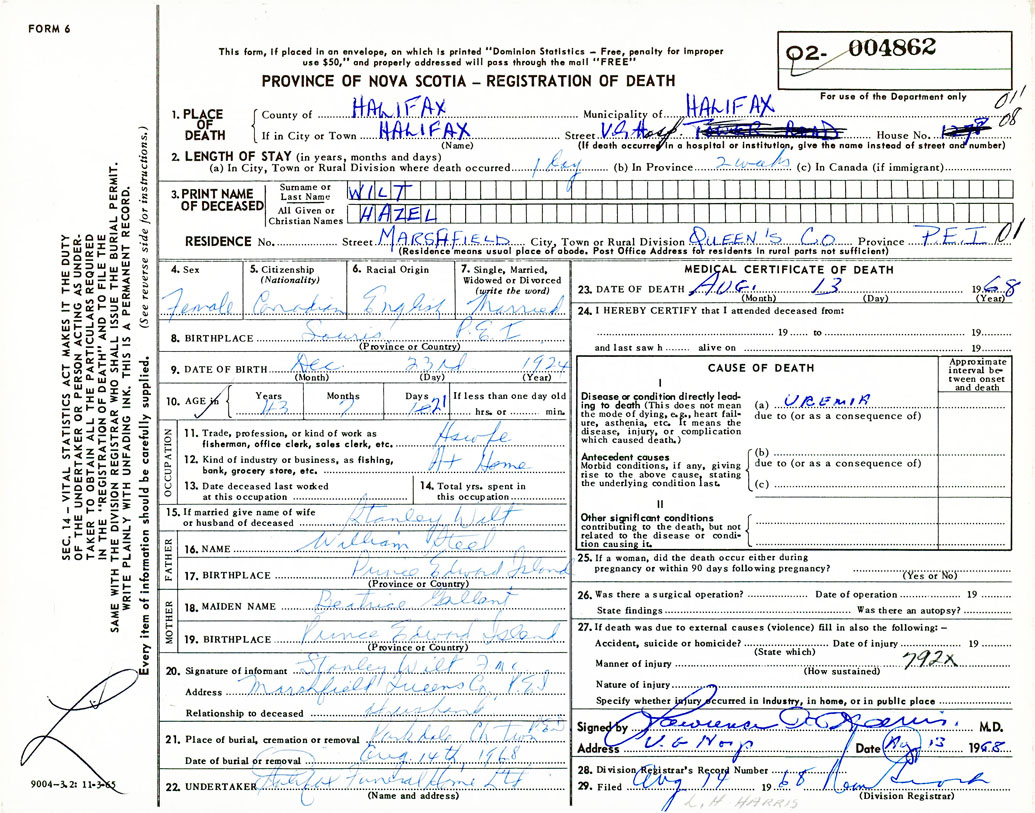 FORM 6
This form, if placed in an envelope, on which is printed "Dominion Statistics – Free, penalty for improper
use $50," and properly addressed will pass through the mail "FREE"
02- 004862
PROVINCE OF NOVA SCOTIA – REGISTRATION OF DEATH
For use of the Department only
011
08
1. PLACE OF DEATH
County of HALIFAX Municipality of HALIFAX
If in City or Town HALIFAX Street V.G. Hosp TOWER ROAD House No.
(Name) (If death occurred in a hospital or institution, give the name instead of street and number)
2. LENGTH OF STAY (in years, months and days)
(a) In City, Town or Rural Division where death occurred 1 day (b) In Province 2 weeks (c) In Canada (if immigrant)
3. PRINT NAME OF DECEASED
Surname or Last Name WILT
All Given or Christian Names HAZEL
RESIDENCE No. Street MARSHFIELD City, Town or Rural Division QUEEN'S CO Province P.E.I 01
(Residence means usual place of abode. Post Office Address for residents in rural parts not sufficient)
4. Sex Female
5. Citizenship (Nationality) Canadian
6. Racial Origin English
7. Single, Married, Widowed or Divorced (write the word) Married
8. BIRTHPLACE Souris P.E.I
(Province or Country)
9. DATE OF BIRTH Dec. 23rd 1924
(Month) (Day) (Year)
10. AGE in Years 43 Months 7 Days 21 If less than one day old
hrs. or min.
OCCUPATION
11. Trade, profession, or kind of work as
fisherman, office clerk, sales clerk, etc. Hswfe
12. Kind of industry or business, as fishing,
bank, grocery store, etc. At Home
13. Date deceased last worked
at this occupation
14. Total yrs. spent in
this occupation
15. If married give name of wife
or husband of deceased Stanley Wilt
FATHER
16. NAME William Steel
17. BIRTHPLACE Prince Edward Island
(Province or Country)
MOTHER
18. MAIDEN NAME Beatrice Gallant
19. BIRTHPLACE Prince Edward Island
(Province or Country)
20. Signature of informant Stanley Wilt
Address Marshfield Queens Co, P.E.I
Relationship to deceased Husband
21. Place of burial, cremation or removal Ch'Town PEI
Date of burial or removal Aug. 14th, 1968
22. UNDERTAKER Halifax Funeral Home Ltd
(Name and address)
MEDICAL CERTIFICATE OF DEATH
23. DATE OF DEATH AUG. 13 1968
(Month) (Day) (Year)
24. I HEREBY CERTIFY that I attended deceased from:
19 to 19
and last saw h alive on 19
CAUSE OF DEATH
Approximate interval between onset and death
I
Disease or condition directly leading to death (This does not mean the mode of dying, e.g., heart failure, asthenia, etc. It means the disease, injury, or complication which caused death.)
(a) UREMIA
due to (or as a consequence of)
Antecedent causes
Morbid conditions, if any, giving rise to the above cause, stating the underlying condition last.
(b)
due to (or as a consequence of)
(c)
II
Other significant conditions
contributing to the death, but not related to the disease or condition causing it.
25. If a woman, did the death occur either during
pregnancy or within 90 days following pregnancy?
(Yes or No)
26. Was there a surgical operation? Date of operation 19
State findings Was there an autopsy?
27. If death was due to external causes (violence) fill in also the following: –
Accident, suicide or homicide? Date of injury 19
(State which)
Manner of injury 792X
(How sustained)
Nature of injury
Specify whether injury occurred in Industry, in home, or in public place
Signed by Lawrence M.D.
Address V.G Hosp Date Aug 13 1968
28. Division Registrar's Record Number
29. Filed Aug 14 1968
(Division Registrar)
L. H HARRIS
SEC. 14 – VITAL STATISTICS ACT MAKES IT THE DUTY
OF THE UNDERTAKER OR PERSON ACTING AS UNDER-
TAKER TO OBTAIN ALL THE PARTICULARS REQUIRED
IN THE "REGISTRATION OF DEATH" AND TO FILE THE
SAME WITH THE DIVISION REGISTRAR WHO SHALL ISSUE THE BURIAL PERMIT.
WRITE PLAINLY WITH UNFADING INK. THIS IS A PERMANENT RECORD.
Every item of information should be carefully supplied. (See reverse side for instructions.)
9004–3.2: 11-3-65